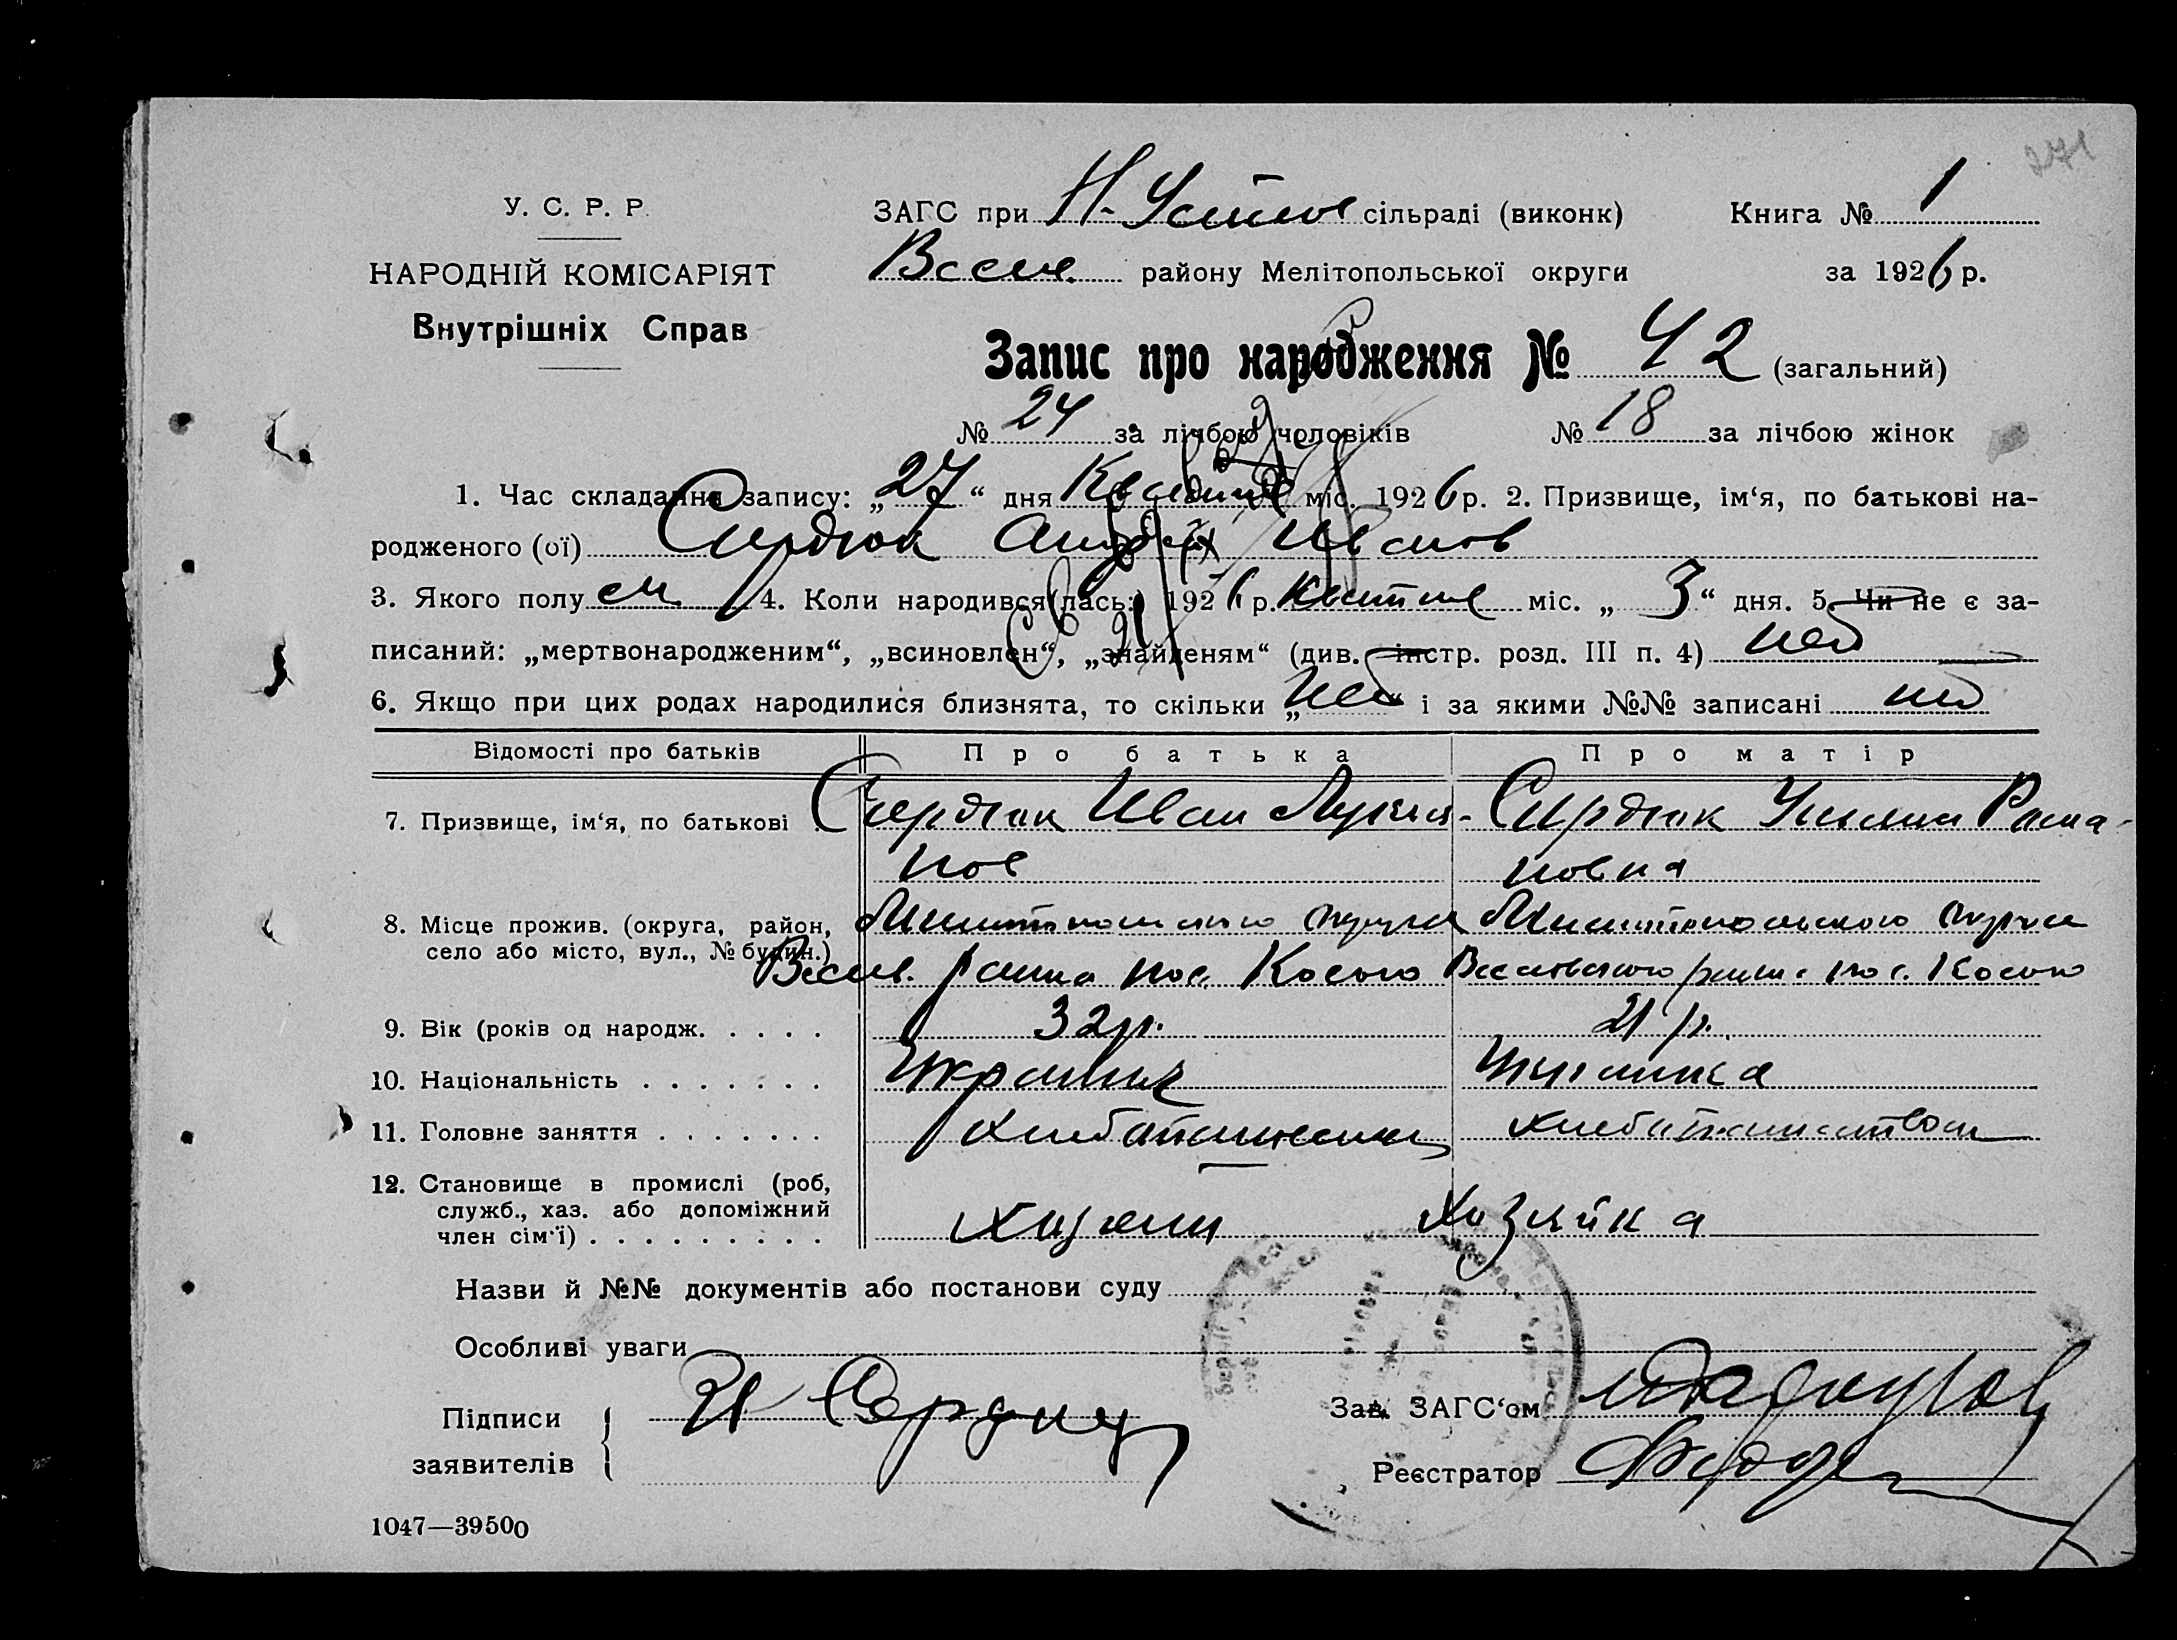 271
У. С. Р. Р.
НАРОДНІЙ КОМІСАРІЯТ
Внутрішніх Справ
ЗАГС при Н-Успен сільраді (виконк) Книга № 1
Весел. району Мелітопольської округи за 1926 р.
Запис про народження № 42 (загальний)
№ 24 за лічбою чоловіків № 18 за лічбою жінок
1. Час складання запису: „27“ дня міс. 1926 р. 2. Призвище, ім‘я, по батькові на-
родженого (ої) Сирдюк Андрей Иванов
3. Якого полу м 4. Коли народився(лась:) 1926 р. міс. „3“ дня. 5. Чи не є за-
писаний: „мертвонародженим“, „всиновлен“, „знайденям“ (див. інстр. розд. III п. 4) нет
6. Якщо при цих родах народилися близнята, то скільки „нет“ і за якими №№ записані нет
Відомості про батьків Про батька Про матір
7. Призвище, ім‘я, по батькові Сирдюк Иван Лукья- Сирдюк Рома-
нов новна
8. Місце прожив. (округа, район, Мелитопольского округа Мелитопольского округа
село або місто, вул., № будин.) Весел. раина пос. Косого Веселовского раина пос. Косого
9. Вік (років од народж. . . . . 32 р. 21 р.
10. Національність . . . . . . . Украинец Украинка
11. Головне заняття . . . . . . .
12. Становище в промислі (роб,
служб., хаз. або допоміжний
член сім‘ї) . . . . . . . . . Хозяин Хозяйка
Назви й №№ документів або постанови суду
Особливі уваги
Підписи И Сердюк Зав. ЗАГС‘ом
заявителів Реєстратор
1047—39500